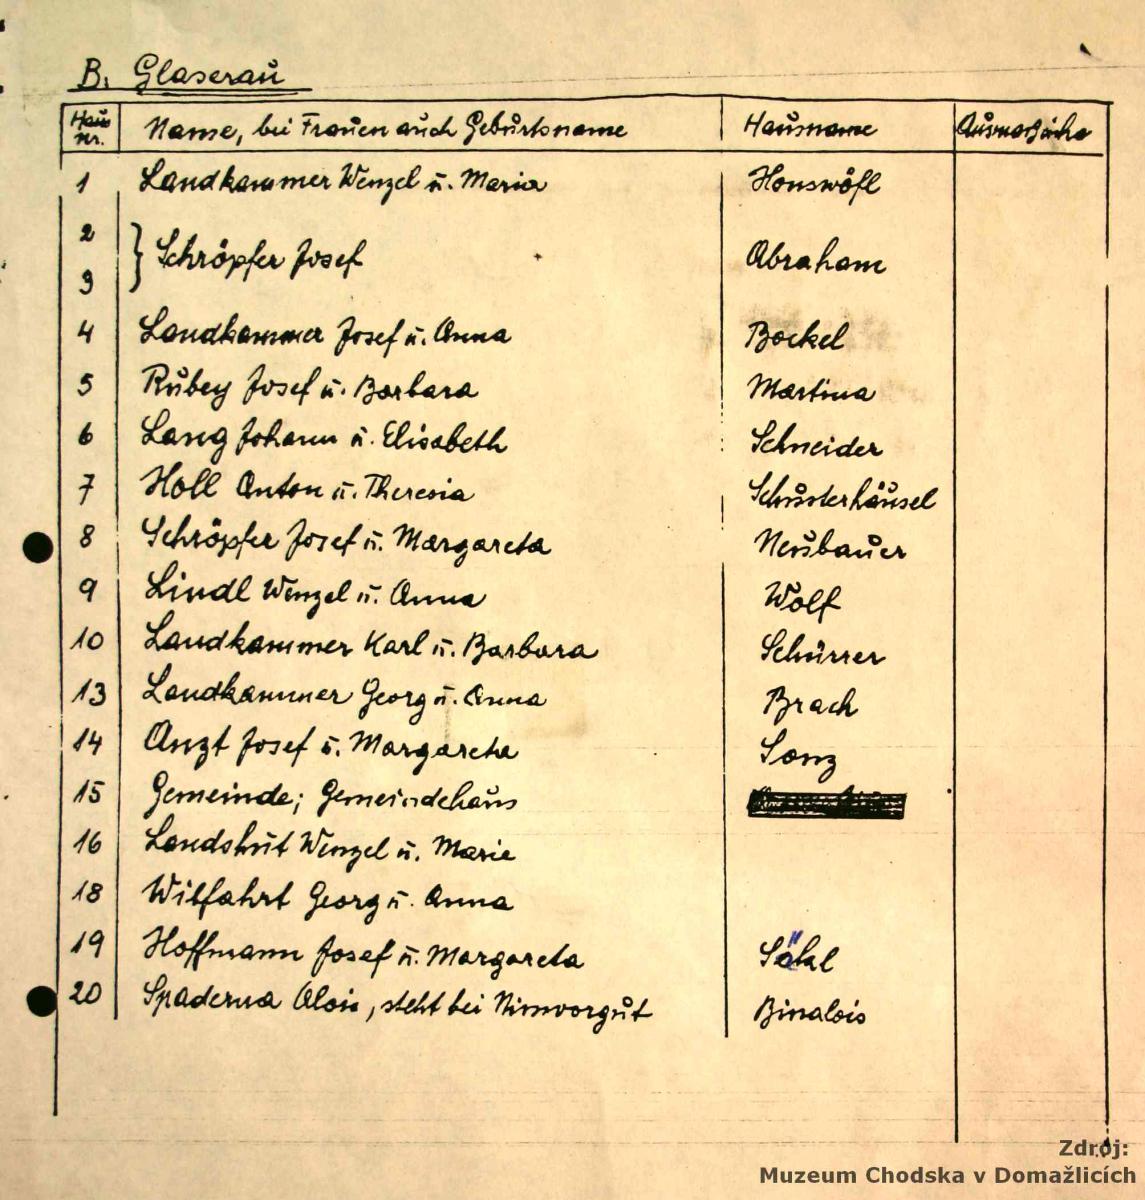 B. Glaserau
Haus nr. Name, bei Frauen auch Geburtsname Hausname
1 Landkammer Wenzel u. Maria Honswöfl
2
3 } Schröpfer Josef Abraham
4 Landkammer Josef u. Anna Bockel
5 Rubey Josef u. Barbara Martina
6 Lang Johann u. Elisabeth Schneider
7 Holl Anton u. Theresia Schusterhäusel
8 Schröpfer Josef u. Margareta Neubauer
9 Lindl Wenzel u. Anna Wolf
10 Landkammer Karl u. Barbara Schürrer
13 Landkammer Georg u. Anna Brach
14 Anzt Josef u. Margareta Sonz
15 Gemeinde; Gemeindehaus
16 Landshut Wenzel u. Marie
18 Wilfahrt Georg u. Anna
19 Hoffmann Josef u. Margareta
20 Spaderna Alois, steht bei Nimvorgut Binalois
Zdroj:
Muzeum Chodska v Domažlicích